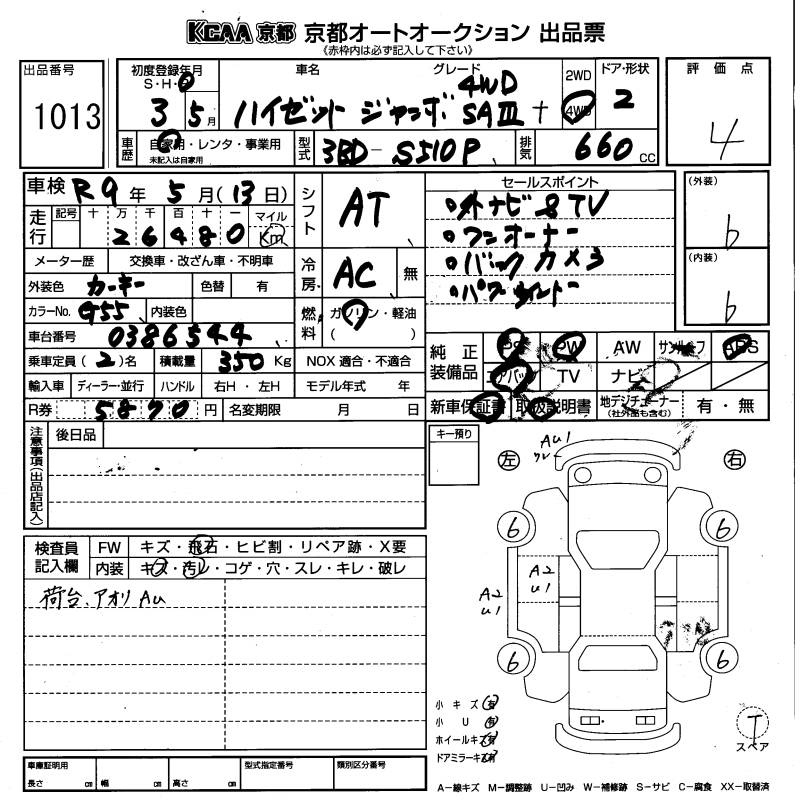 KCAA 京都 京都オートオークション 出品票
《赤枠内は必ず記入して下さい》
出品番号
1013
初度登録年月
S・H・R
3 5月
車名 グレード
ハイゼット ジャンボ 4WD SAⅢt
2WD
4WD
ドア・形状
2
評価点
4
車歴
自家用・レンタ・事業用
未記入は自家用
型式
3BD-S510P
排気
660 CC
車検 R9年 5月(13日)
走行
記号 十 万 千 百 十 一 マイル
26480 Km
シフト
AT
セールスポイント
・外ナビ&TV
・ワンオーナー
・バックカメラ
(外装)
b
(内装)
b
メーター歴 交換車・改ざん車・不明車
外装色 カーキー 色替 有
カラーNo. G55 内装色
冷房
AC 無
燃料
ガソリン・軽油
( )
車台番号 0386544
乗車定員 (2)名 積載量 350 Kg NOX 適合・不適合
輸入車 ディーラー・並行 ハンドル 右H・左H モデル年式 年
R券 5870 円 名変期限 月 日
純正装備品
PS PW AW サンルーフ ABS
エアバッグ TV ナビ
新車保証書 取扱説明書 地デジチューナー
(社外品も含む)
有・無
注意事項(出品店記入)
後日品
キー預り
左 右
AU1
6 6
A2
U1
A2
U1
6 6
検査員記入欄
FW キズ・飛石・ヒビ割・リペア跡・X要
内装 キズ・汚レ・コゲ・穴・スレ・キレ・破レ
荷台、アオリ AU
小キズ 有
小U 有
ホイールキズ 有
ドアミラーキズ 有
T
スペア
車庫証明用
長さ cm 幅 cm 高さ cm
型式指定番号
類別区分番号
A−線キズ M−調整跡 U−凹み W−補修跡 S−サビ C−腐食 XX−取替済